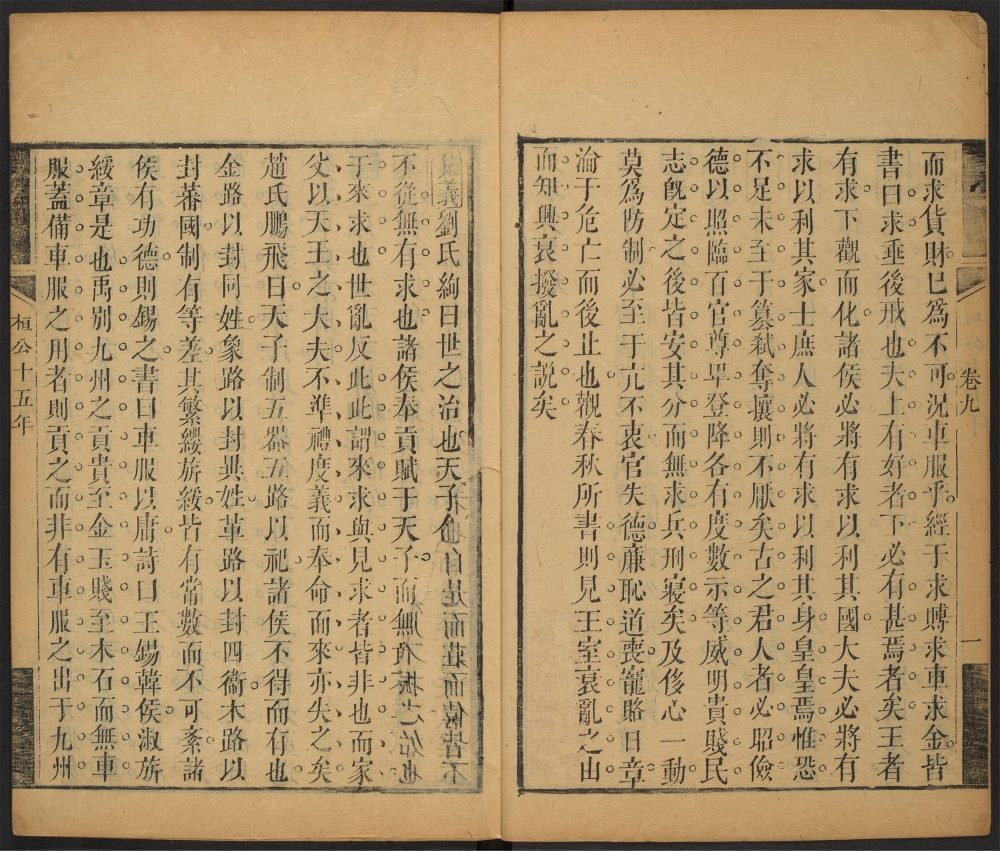 卷九
一
而求貨財已爲不可況車服乎經于求賻求車求金皆
書曰求垂後戒也夫上有好者下必有甚焉者矣王者
有求下觀而化諸侯必將有求以利其國大夫必將有
求以利其家士庶人必將有求以利其身皇皇焉惟恐
不足未至于篡弑奪攘則不厭矣古之君人者必昭儉
德以照臨百官尊卑登降各有度數示等威明貴賤民
志旣定之後皆安其分而無求兵刑寢矣及侈心一動
莫爲防制必至于亢不衷官失德廉恥道喪寵賂日章
淪于危亡而後止也觀春秋所書則見王室衰亂之由
而知興衰撥亂之說矣
義劉氏絢曰世之治也天子
不從無有求也諸侯奉貢賦于天子而無
于來求也世亂反此此謂來求與見求者皆非也而家
父以天王之大夫不準禮度義而奉命而來亦失之矣
趙氏鵬飛曰天子制五器五路以祀諸侯不得而有也
金路以封同姓象路以封異姓革路以封四衞木路以
封蕃國制有等差其繁纓旂綏皆有常數而不可紊諸
侯有功德則錫之書曰車服以庸詩曰王錫韓侯淑旂
綏章是也禹別九州之貢貴至金玉賤至木石而無車
服蓋備車服之用者則貢之而非有車服之出于九州
桓公十五年